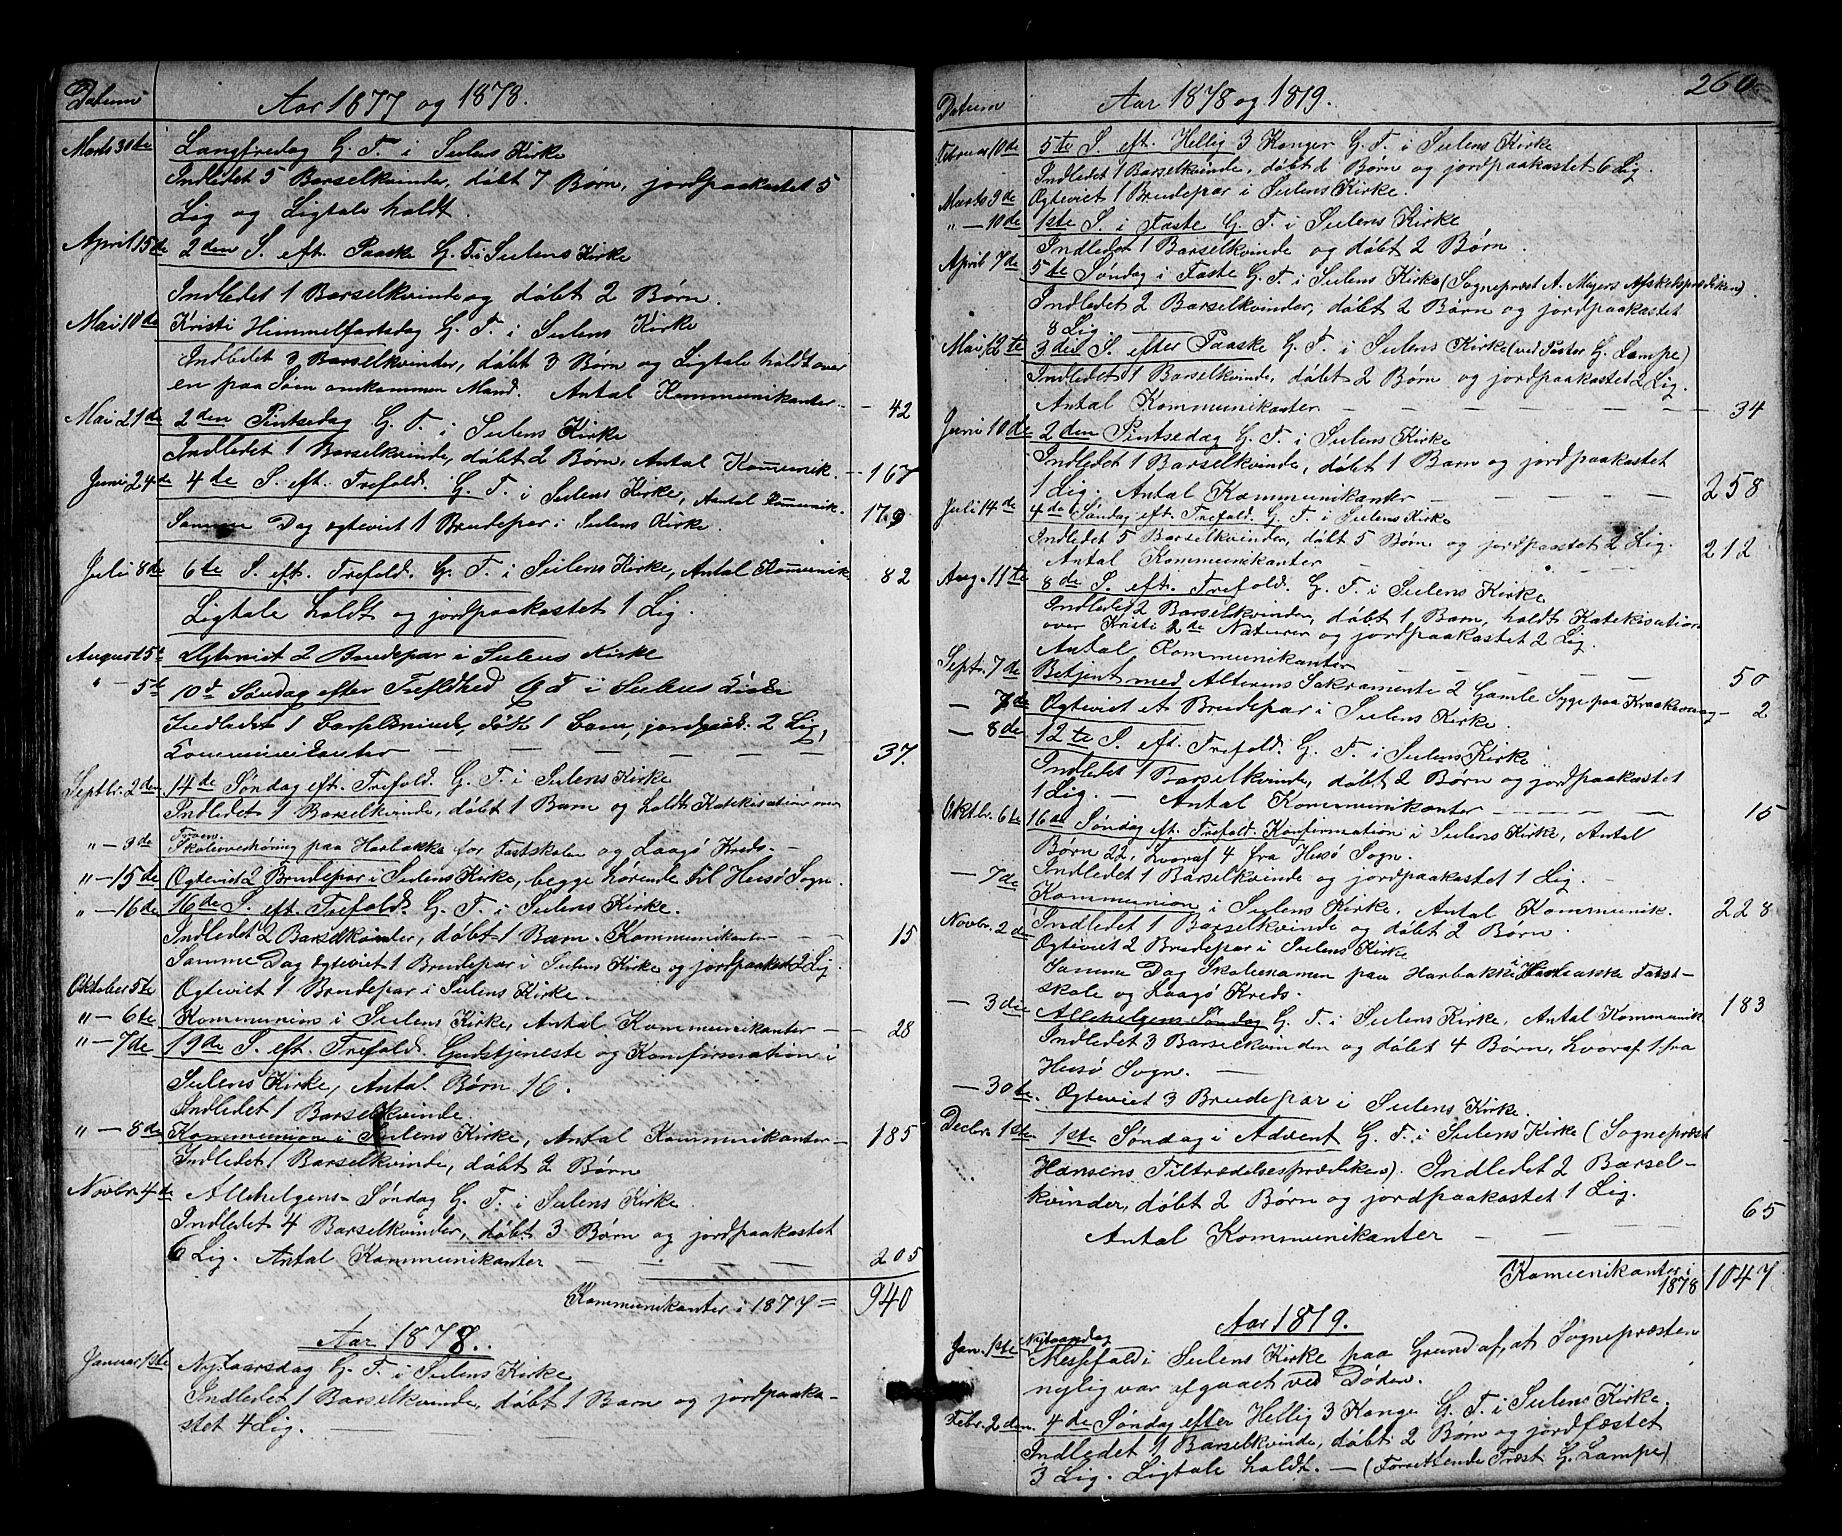 Datum Aar 1877 og 1878.
Marts 30te Langfredag G. T. i Sulens Kirke
Indledet 5 Barselkvinder, døbt 7 Børn, jordpaakastet 5
Lig og Ligtale holdt.
April 15de 2den S. eft. Paaske G. T. i Sulens Kirke
Indledet 1 Barselkvinde og døbt 2 Børn.
Mai 10de Kristi Himmelfartsdag G. T. i Sulens Kirke
Indledet 3 Barselkvinder, døbt 3 Børn og Ligtale holdt over
en paa Søen omkommen Mand. Antal Kommunikanter — 42
Mai 21de 2den Pintsedag G. T. i Sulens Kirke
Indledet 1 Barselkvinde, døbt 2 Børn, Antal Kommunik. — 167
Juni 24de 4de S. eft. Trefold. G. T. i Sulens Kirke, Antal Kommunik. 179
Samme Dag ægteviet 1 Brudepar i Sulens Kirke.
Juli 8de 6te S. eft. Trefold. G. T. i Sulens Kirke, Antal Kommunik 82
Ligtale holdt og jordpaakastet 1 Lig.
August 5te Ægteviet 2 Brudepar i Sulens Kirke
" — 5te 10de Søndag efter Trefldhed G T i Sulens Kirke
Indledet 1 Barselkvinde, døbt 1 Barn, jordpaak. 2 Lig,
Kommunikanter — — — — 37.
Septbr. 2den 14de Søndag eft. Trefold. G. T. i Sulens Kirke
Indledet 1 Barselkvinde, døbt 1 Barn og holdt Katekisation
" — 3de Skoleoverhøring paa Harbakke for Fastskolen og Laagø Kreds. —
" — 15de Ægteviet 2 Brudepar i Sulens Kirke, begge hørende til Husø Sogn.
" — 16de 16de S. eft. Trefold. G. T. i Sulens Kirke.
Indledet 2 Barselkvinder, døbt 1 Barn. Kommunikanter — — 15
Samme Dag ægteviet 1 Brudepar i Sulens Kirke og jordpaakastet 2 Lig.
Oktober 5te Ægteviet 1 Brudepar i Sulens Kirke.
" — 6te Kommunion i Sulens Kirke, Antal Kommunikanter — 28
" — 7de 19de S. eft. Trefold. Gudstjeneste og Konfirmation i
Sulens Kirke, Antal Børn 16.
Indledet 1 Barselkvinde.
" — 8de Kommunion i Sulens Kirke, Antal Kommunikanter — 185
Indledet 1 Barselkvinde, døbt 2 Børn
Novbr. 4de Allehelgens-Søndag G. T. i Sulens Kirke
Indledet 4 Barselkvinder, døbt 3 Børn og jordpaakastet
6 Lig. Antal Kommunikanter — — — 205
Kommunikanter i 1877 = 940
Aar 1878.
Januar 1ste Nytaarsdag G. T. i Sulens Kirke
Indledet 1 Barselkvinde, døbt 1 Barn og jordpaaka-
stet 4 Lig. —
260
Datum Aar 1878 og 1879.
Februar 10de 5te S. eft. Hellig 3 Konger G. T. i Sulens Kirke
Indledet 1 Barselkvinde, døbt 2 Børn og jordpaakastet 6 Lig.
Marts 9de Ægteviet 1 Brudepar i Sulens Kirke.
" — 10de 1ste S. i Faste G. T. i Sulens Kirke
Indledet 1 Barselkvinde og døbt 2 Børn.
April 7de 5te Søndag i Faste G. T. i Sulens Kirke (Sogneprest A. Meyers Afskedsprædiken).
Indledet 2 Barselkvinder, døbt 2 Børn og jordpaakastet
8 Lig.
Mai 12te 3die S. efter Paaske G. T. i Sulens Kirke (ved Pastor G. Lampe)
Indledet 1 Barselkvinde, døbt 2 Børn og jordpaakastet 2 Lig.
Antal Kommunikanter — — — — 34
Juni 10de 2den Pintsedag G. T. i Sulens Kirke
Indledet 1 Barselkvinde, døbt 1 Barn og jordpaakastet
1 Lig. Antal Kommunikanter — — — 258
Juli 14de 4de Søndag eft. Trefold. G. T. i Sulens Kirke
Indledet 5 Barselkvinder, døbt 5 Børn og jordpaakastet 2 Lig.
Antal Kommunikanter — — — 212
Aug. 11te 8de S. eft. Trefold. G. T. i Sulens Kirke
Indledet 2 Barselkvinder, døbt 1 Barn, holdt Katekisation
over Kristi 2de Naturer og jordpaakastet 2 Lig.
Antal Kommunikanter — — — 50
Sept. 7de Betjent med Alterens Sakramente 2 Gamle Syge paa Kraakevaag — 2
— 7de Ægteviet et Brudepar i Sulens Kirke.
— 8de 12te S. eft. Trefold. G. T. i Sulens Kirke
Indledet 1 Barselkvinde, døbt 2 Børn og jordpaakastet
1 Lig. — Antal Kommunikanter — — — 15
Oktbr. 6te 16de Søndag eft. Trefold. Konfirmation i Sulens Kirke, Antal
Børn 22, hvoraf 4 fra Husø Sogn.
Indledet 1 Barselkvinde og jordpaakastet 1 Lig.
— 7de Kommunion i Sulens Kirke, Antal Kommunik. 228
Indledet 1 Barselkvinde og døbt 2 Børn
Novbr. 2de Ægteviet 2 Brudepar i Sulens Kirke
Samme Dag Skoleexamen paa Harbakke i Harbakke Fast-
skole og Laagø Kreds.
— 3die Allehelgens-Søndag G. T. i Sulens Kirke. Antal Kommunik. 183
Indledet 3 Barselkvinder og døbt 4 Børn, hvoraf 1 fra
Husø Sogn.
— 30te. Ægteviet 3 Brudepar i Sulens Kirke.
Decbr. 1ste 1ste Søndag i Advent G. T. i Sulens Kirke (Sogneprest
Hansens Tiltrædelsesprædiken). Indledet 2 Barsel-
kvinder, døbt 2 Børn og jordpaakastet 1 Lig.
Antal Kommunikanter — — 65
Komunikanter i
1878 1047
Aar 1879.
Jan. 1ste Nytaarsdag
Messefald i Sulens Kirke paa Grund af, at Sognepræsten
nylig var afgaaet ved Døden.
Febr. 2den. 4de Søndag efter Hellig 3 Konge G. T. i Sulens Kirke.
Indledet 1 Barselkvinde, døbt 2 Børn og jordfæstet
3 Lig. Ligtale holdt. — (Forrettende Præst G. Lampe)